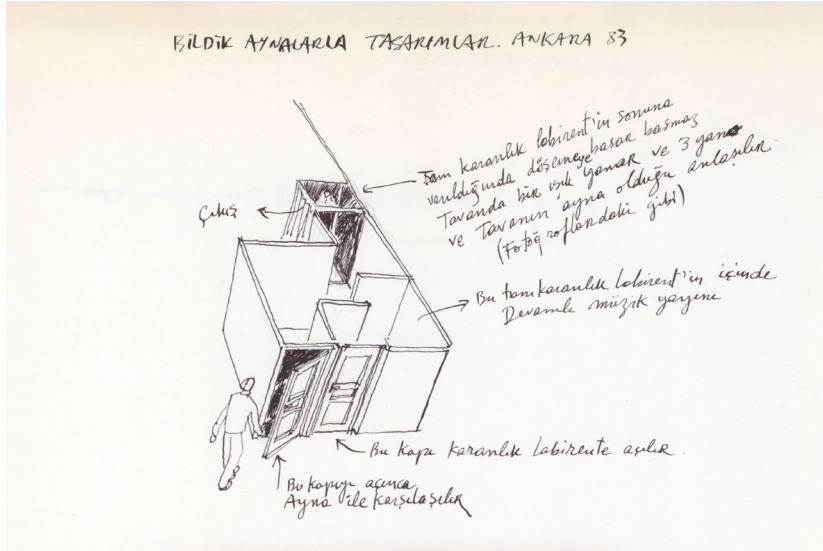 BİLDİK AYNALARLA TASARIMLAR. ANKARA 83
Tam karanlık labirent'in sonuna
varıldığında döşemeye basar basmaz
Tavanda bir ışık yanar ve 3 yana
ve Tavanın ayna olduğu anlaşılır.
(Fotoğraflardaki gibi)
Çıkış
Bu tam karanlık labirent'in içinde
Devamlı müzik yayını
Bu kapı karanlık labirente açılır.
Bu kapıyı açınca
Ayna ile karşılaşılır